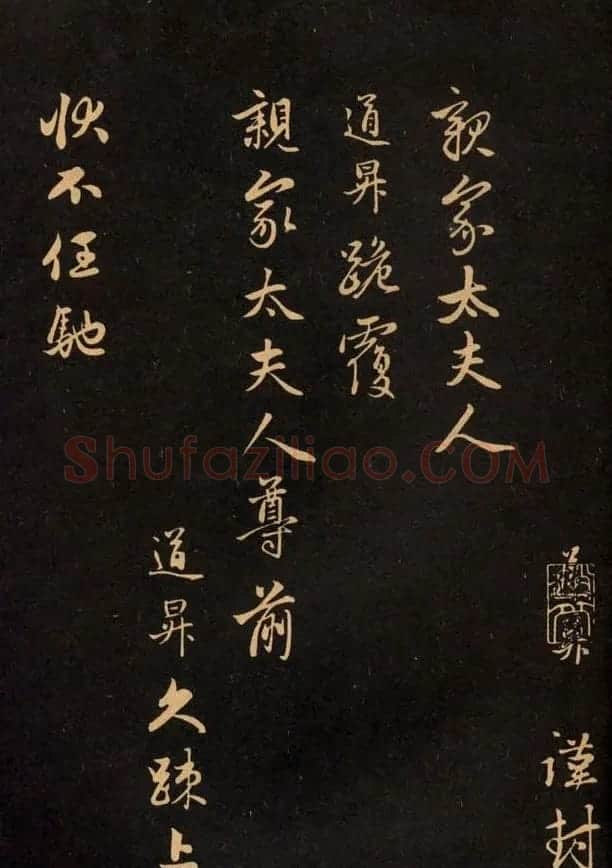 謹封
親家太夫人
道昇跪覆
親家太夫人尊前
道昇久疎上
狀不任馳
Shufaziliao.COM